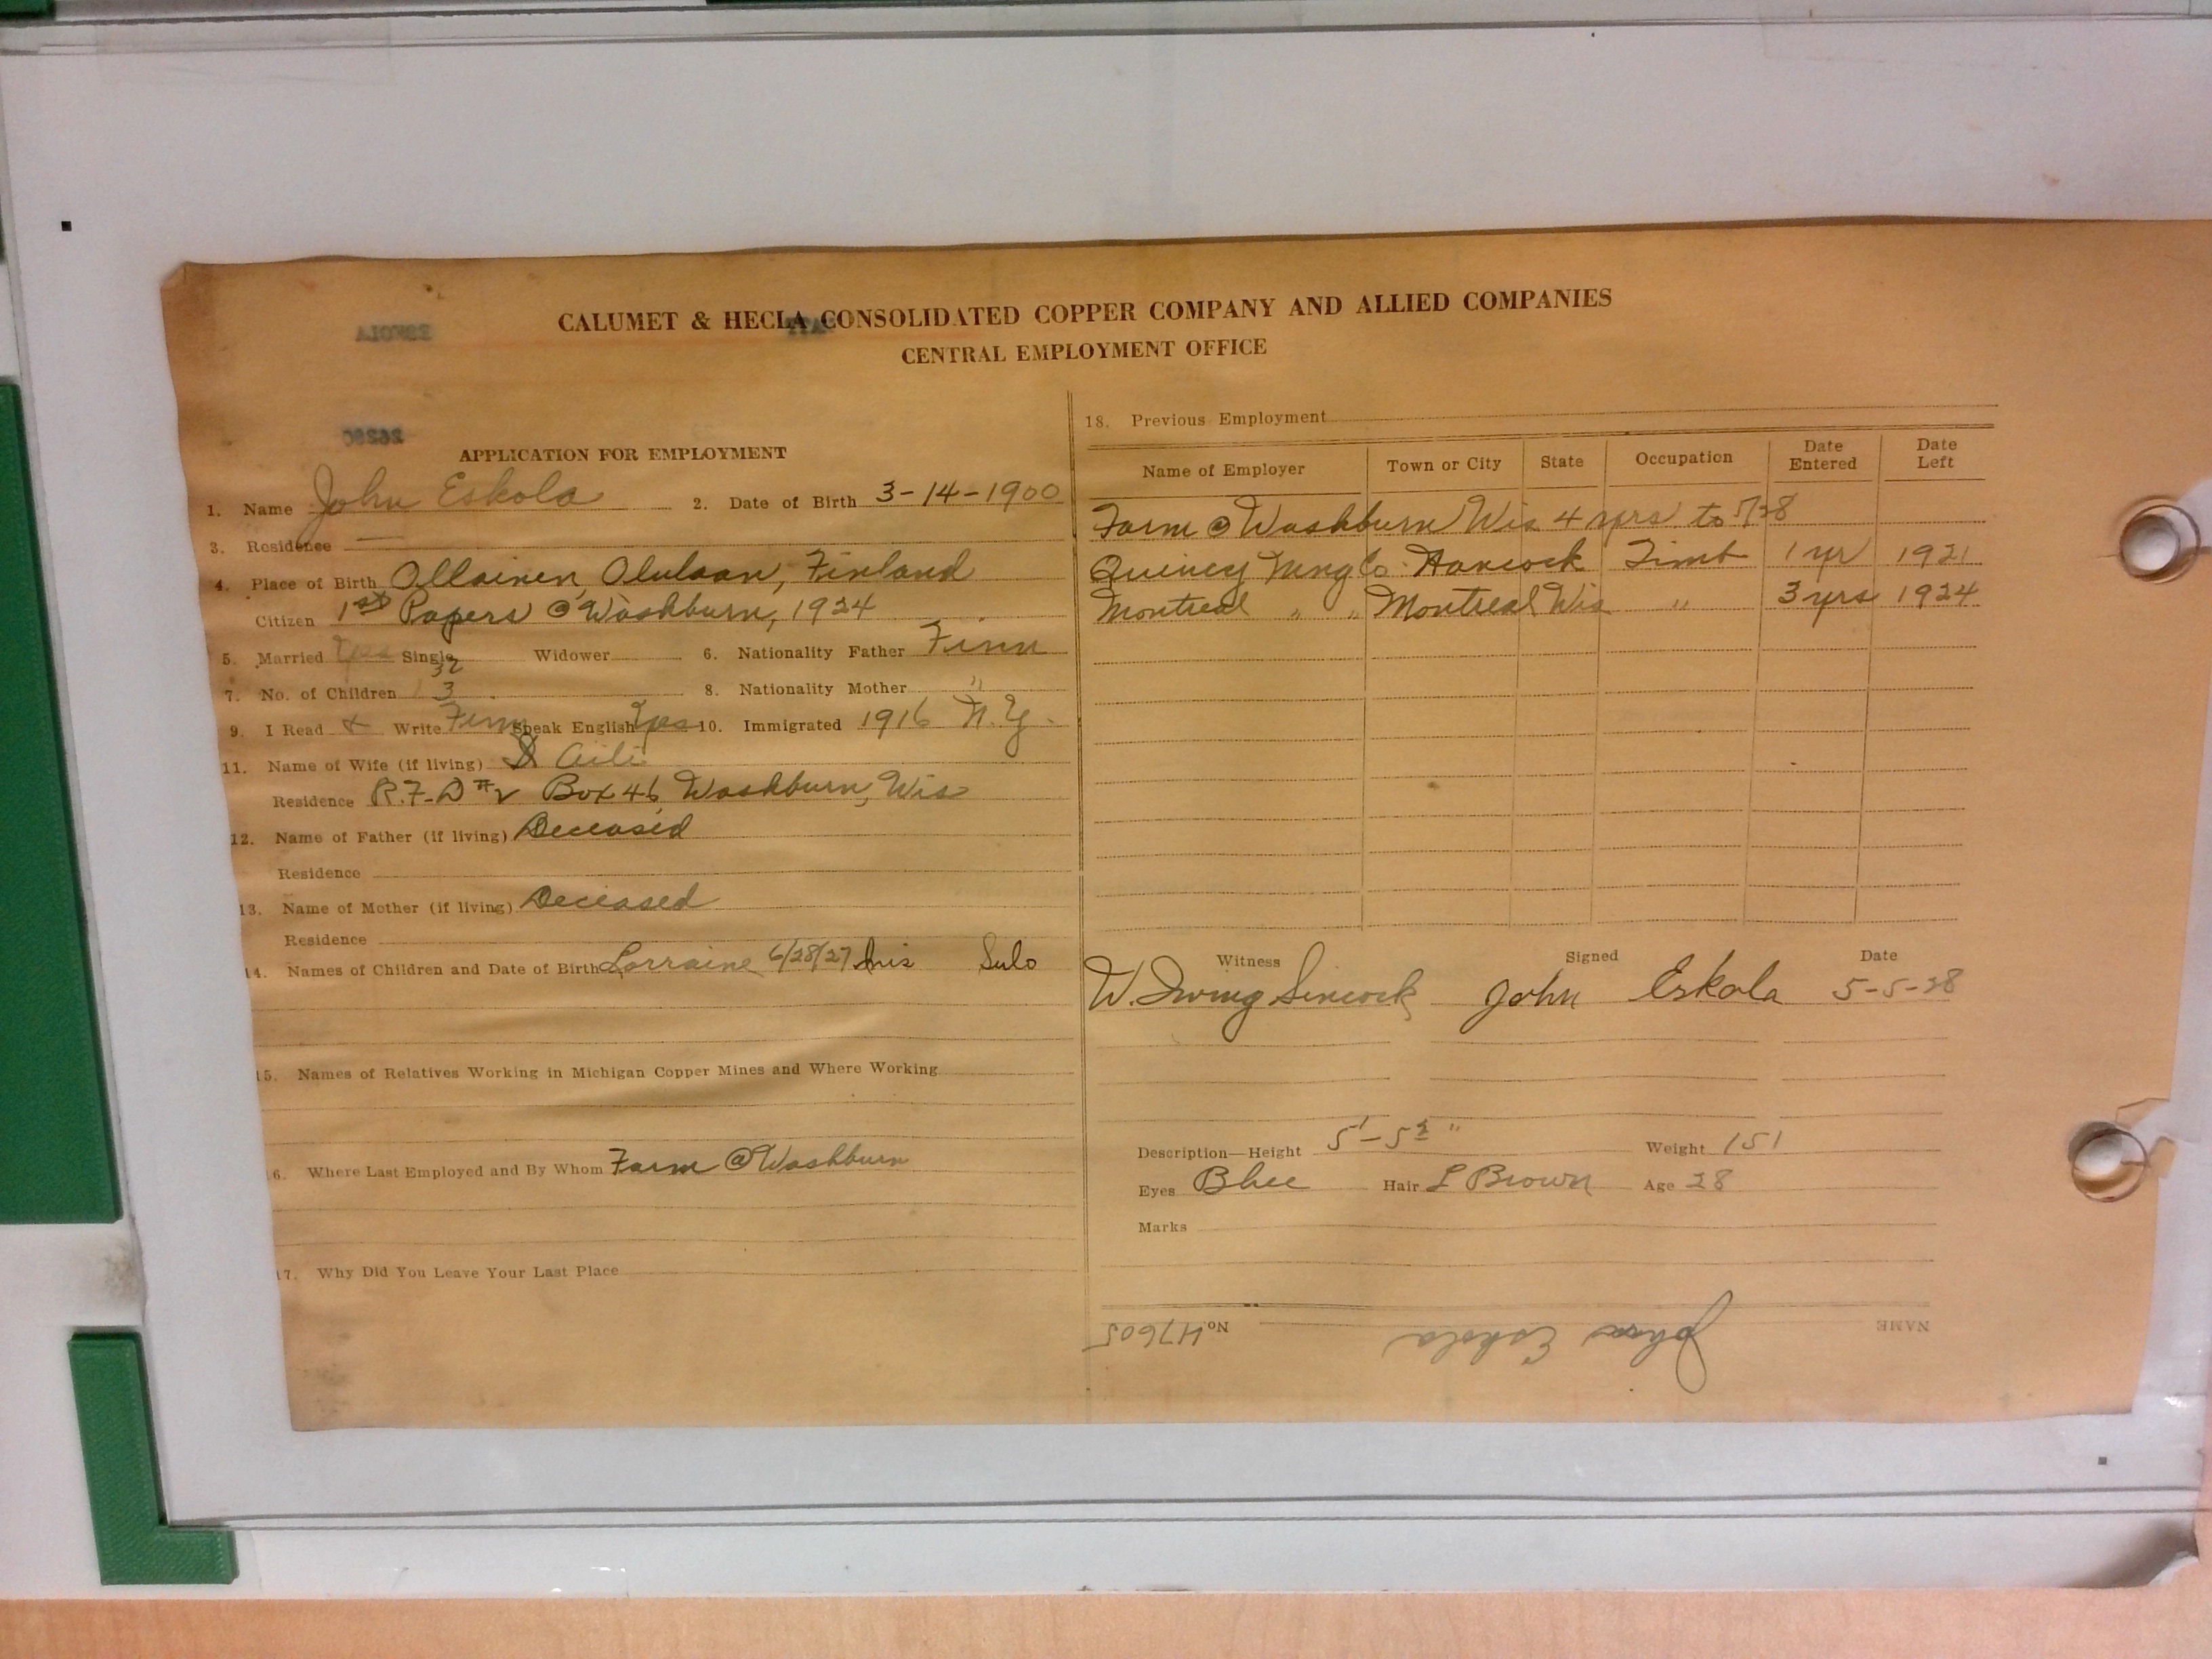 CALUMET & HECLA CONSOLIDATED COPPER COMPANY AND ALLIED COMPANIES
CENTRAL EMPLOYMENT OFFICE
ESKOLA
APPLICATION FOR EMPLOYMENT
1. Name John Eskola 2. Date of Birth 3-14-1900
3. Residence —
4. Place of Birth Ollainen, Olulaan, Finland
Citizen 1st Papers @ Washburn, 1924
5. Married Yes Single Widower 6. Nationality Father Finn
7. No. of Children 3 8. Nationality Mother "
9. I Read & Write Finn Speak English Yes 10. Immigrated 1916 N.Y.
11. Name of Wife (if living) Aili
Residence R.F.D #2 Box 46, Washburn, Wis
12. Name of Father (if living) Deceased
Residence
13. Name of Mother (if living) Deceased
Residence
14. Names of Children and Date of Birth Lorraine 6/28/27 Iris Sulo
15. Names of Relatives Working in Michigan Copper Mines and Where Working
16. Where Last Employed and By Whom Farm @ Washburn
17. Why Did You Leave Your Last Place
18. Previous Employment
Name of Employer Town or City State Occupation Date Entered Date Left
Farm @ Washburn Wis 4 yrs to
Quincy Mng Co. Hancock Timb 1 yr 1921
Montreal " " Montreal Wis " 3 yrs 1924
Witness Signed Date
W. Irving Sincock John Eskola 5-5-28
Description—Height 5'-5½" Weight 151
Eyes Blue Hair L Brown Age 28
Marks
NAME John Eskola No. 47605